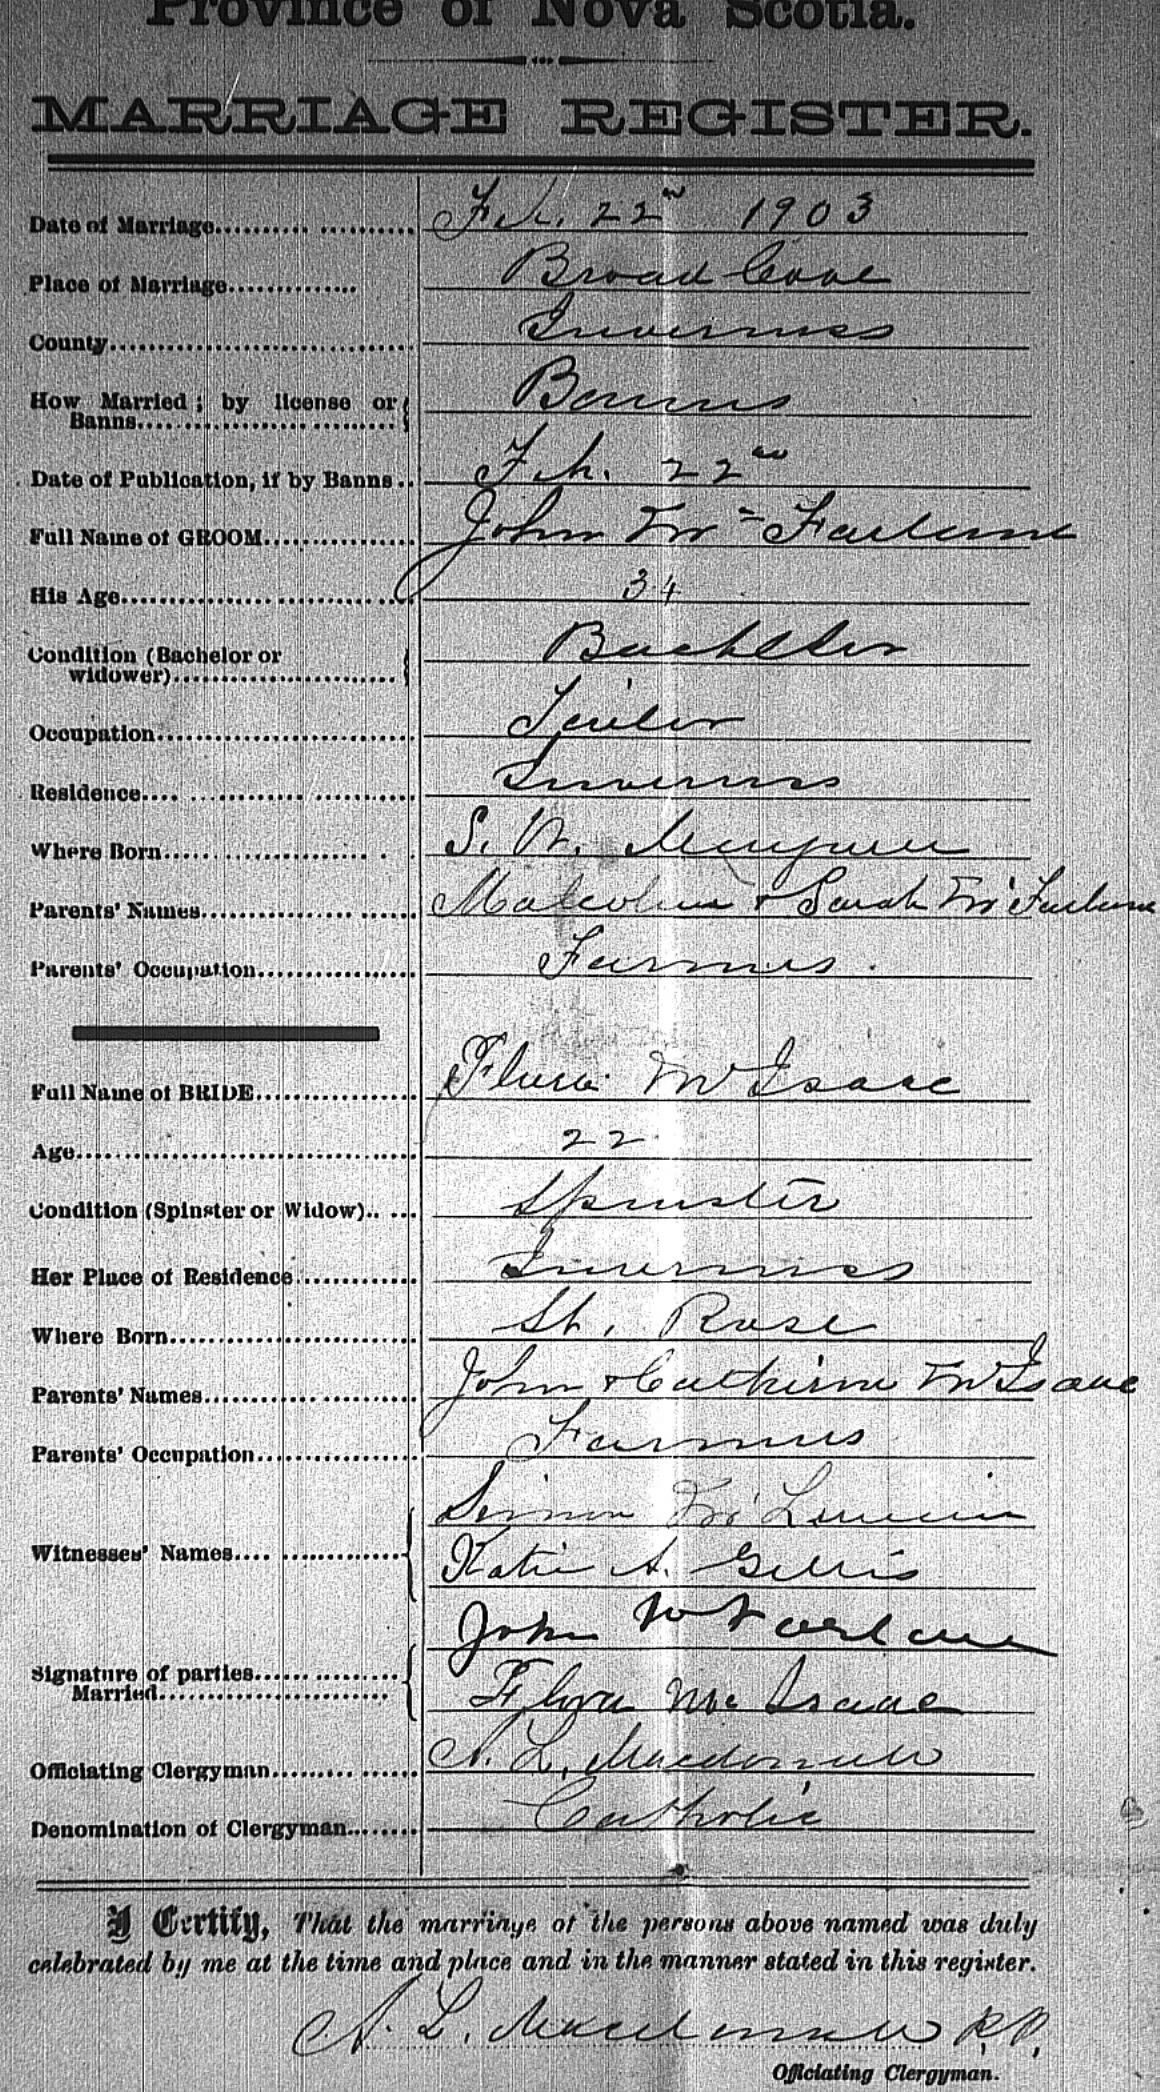 Province of Nova Scotia.
MARRIAGE REGISTER.
Date of Marriage Feb. 22nd 1903
Place of Marriage Broad Cove
County Inverness
How Married; by license or Banns Banns
Date of Publication, if by Banns Feb. 22nd
Full Name of GROOM John Mc Farlane
His Age 34
Condition (Bachelor or widower) Bachelor
Occupation Tailor
Residence Inverness
Where Born S. W. Margaree
Parents' Names Malcolm & Sarah Mc Farlane
Parents' Occupation Farmers.
Full Name of BRIDE Flora McIsaac
Age 22
Condition (Spinster or Widow) Spinster
Her Place of Residence Inverness
Where Born St. Rose
Parents' Names John & Catherine McIsaac
Parents' Occupation Farmers
Witnesses' Names Simon Mc
Katie A. Gillis
Signature of parties Married John McFarlane
Flora McIsaac
Officiating Clergyman A. L. Macdonald
Denomination of Clergyman Catholic
I Certify, That the marriage of the persons above named was duly
celebrated by me at the time and place and in the manner stated in this register.
A. L. Macdonald P.P.
Officiating Clergyman.